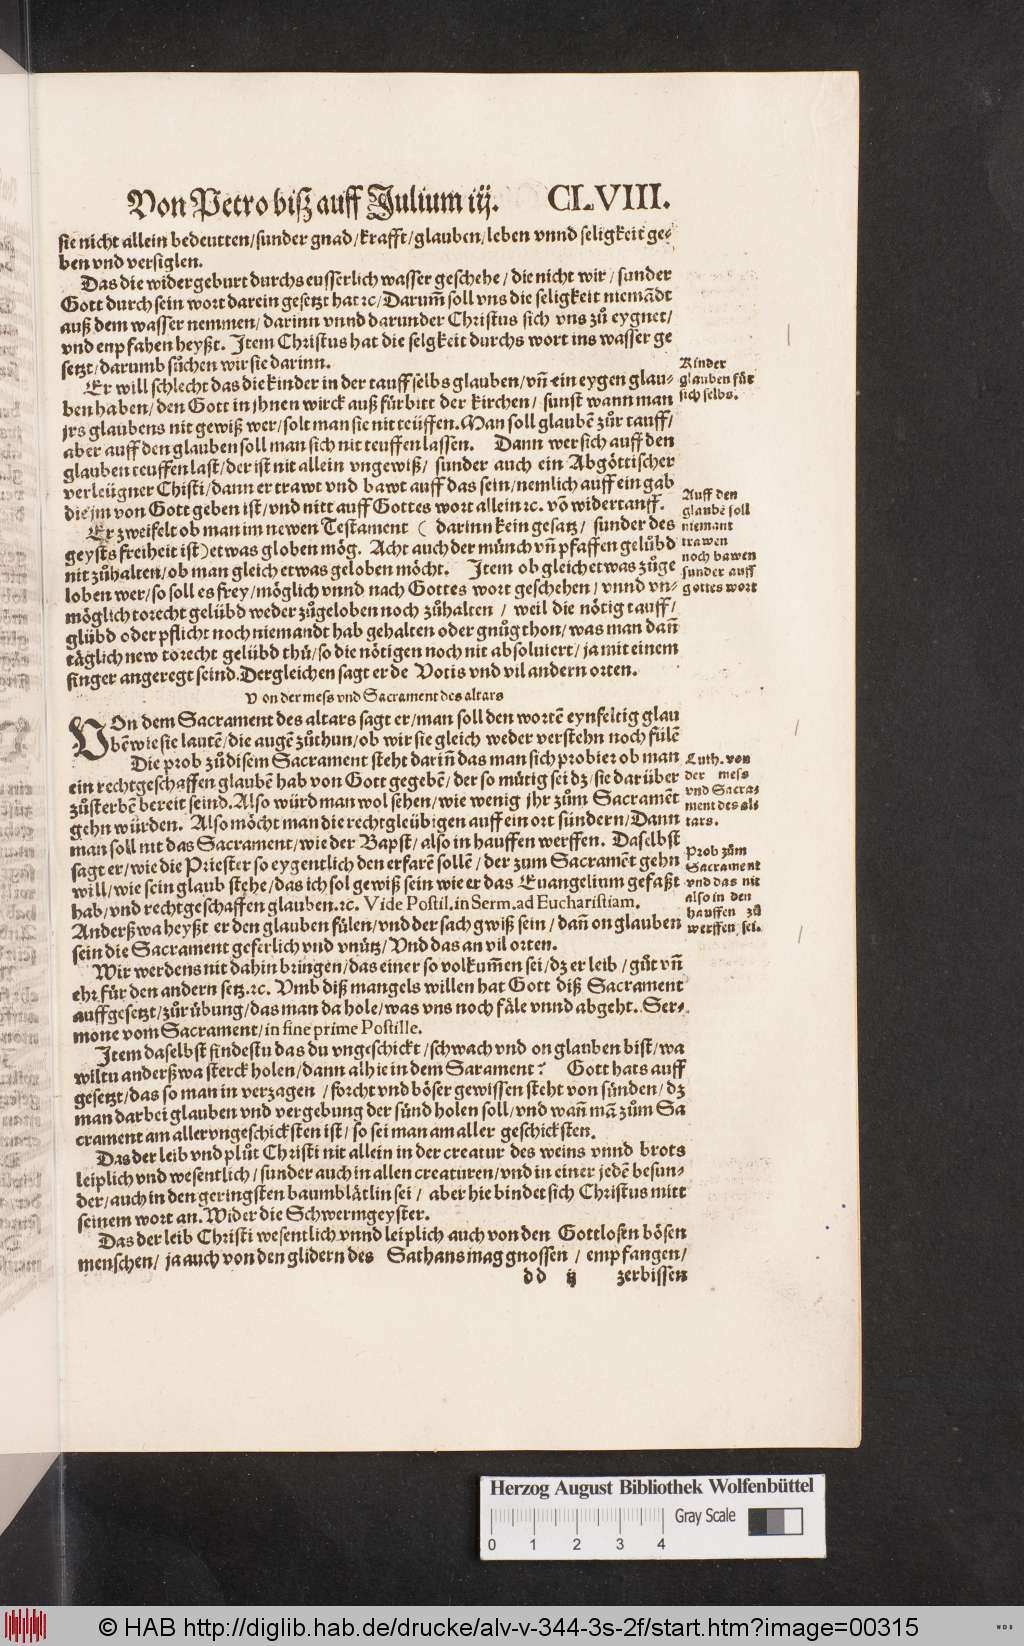 Von Petro biß auff Julium iij. CLVIII.
sie nicht allein bedeutten/sunder gnad/krafft/glauben/leben vnnd seligkeit ge-
ben vnd versiglen.
Das die widergeburt durchs eusserlich wasser geschehe/ die nicht wir/ sunder
Gott durch sein wort darein gesetzt hat ꝛc/ Darum̃ soll vns die seligkeit niemãdt
auß dem wasser nemmen/ darinn vnnd darunder Christus sich vns zů eygnet/
vnd enpfahen heyßt. Item Christus hat die selgkeit durchs wort ins wasser ge
setzt/darumb sůchen wir sie darinn.
Er will schlecht das die kinder in der tauff selbs glauben/vñ ein eygen glau-
ben haben/den Gott in jhnen wirck auß fürbitt der kirchen/ sunst wann man
jrs glaubens nit gewiß wer/solt man sie nit teüffen. Man soll glaubẽ zůr tauff/
aber auff den glauben soll man sich nit teuffen lassen. Dann wer sich auff den
glauben teuffen last/der ist nit allein vngewiß/ sunder auch ein Abgöttischer
verleügner Chisti/dann er trawt vnd bawt auff das sein/nemlich auff ein gab
die jm von Gott geben ist/vnd nitt auff Gottes wort allein ꝛc. võ widertauff.
Er zweifelt ob man im newen Testament ( darinn kein gesatz/ sunder des
geysts freiheit ist) etwas globen mög. Acht auch der münch vñ pfaffen gelübd
nit zůhalten/ob man gleich etwas geloben möcht. Item ob gleich etwas zůge
loben wer/so soll es frey/möglich vnnd nach Gottes wort geschehen/ vnnd vn-
möglich torecht gelübd weder zůgeloben noch zůhalten / weil die nötig tauff/
glübd oder pflicht noch niemandt hab gehalten oder gnůg thon/was man dañ
täglich new torecht gelübd thů/so die nötigen noch nit absoluiert/ja mit einem
finger angeregt seind. Dergleichen sagt er de Votis vnd vil andern orten.
Von der mess vnd Sacrament des altars
VOn dem Sacrament des altars sagt er/man soll den wortẽ eynfeltig glau
bẽ wie sie lautẽ/die augẽ zůthun/ob wir sie gleich weder verstehn noch fülẽ
Die prob zů disem Sacrament steht dariñ das man sich probier ob man
ein rechtgeschaffen glaubẽ hab von Gott gegebẽ/der so mütig sei dz/sie darüber
zůsterbẽ bereit seind. Also würd man wol sehen/wie wenig jhr zům Sacramẽt
gehn würden. Also möcht man die rechtgleübigen auff ein ort sündern/Dann
man soll nit das Sacrament/wie der Bapst/also in hauffen werffen. Daselbst
sagt er/wie die Priester so eygentlich den erfarẽ sollẽ/ der zum Sacramẽt gehn
will/wie sein glaub stehe/das ich sol gewiß sein wie er das Euangelium gefaßt
hab/vnd rechtgeschaffen glauben.ꝛc. Vide Postil. in Serm. ad Eucharistiam.
Anderßwa heyßt er den glauben fülen/vnd der sach gwiß sein/ dañ on glauben
sein die Sacrament geferlich vnd vnütz/Vnd das an vil orten.
Wir werdens nit dahin bringen/das einer so volkum̃en sei/dz er leib/gůt vñ
ehr für den andern setz.ꝛc. Vmb diß mangels willen hat Gott diß Sacrament
auffgesetzt/zůr übung/das man da hole/was vns noch fäle vnnd abgeht. Ser-
mone vom Sacrament/in fine prime Postille.
Item daselbst findestu das du vngeschickt/schwach vnd on glauben bist/wa
wiltu anderßwa sterck holen/dann alhie in dem Sarament? Gott hats auff
gesetzt/das so man in verzagen /forcht vnd böser gewissen steht von sünden/dz
man darbei glauben vnd vergebung der sünd holen soll/vnd wañ mã zům Sa
crament am aller vngeschicksten ist/ so sei man am aller geschicksten.
Das der leib vnd plůt Christi nit allein in der creatur des weins vnnd brots
leiplich vnd wesentlich/sunder auch in allen creaturen/vnd in einer jedẽ besun-
der/auch in den geringsten baumblätlin sei/ aber hie bindet sich Christus mitt
seinem wort an. Wider die Schwermgeyster.
Das der leib Christi wesentlich vnnd leiplich auch von den Gottlosen bösen
menschen/ ja auch von den glidern des Sathans mag gnossen / empfangen/
dd ij zerbissen
Kinder
glauben für
sich selbs.
Auff den
glaubẽ soll
niemant
trawen
noch bawen
sunder auff
gottes wort
Luth. von
der mess
vnd Sacra-
ment des al-
tars.
Prob zům
Sacrament
vnd das nit
also in den
hauffen zů
werffen sei.
Herzog August Bibliothek Wolfenbüttel
Gray Scale
0 1 2 3 4
© HAB http://diglib.hab.de/drucke/alv-v-344-3s-2f/start.htm?image=00315